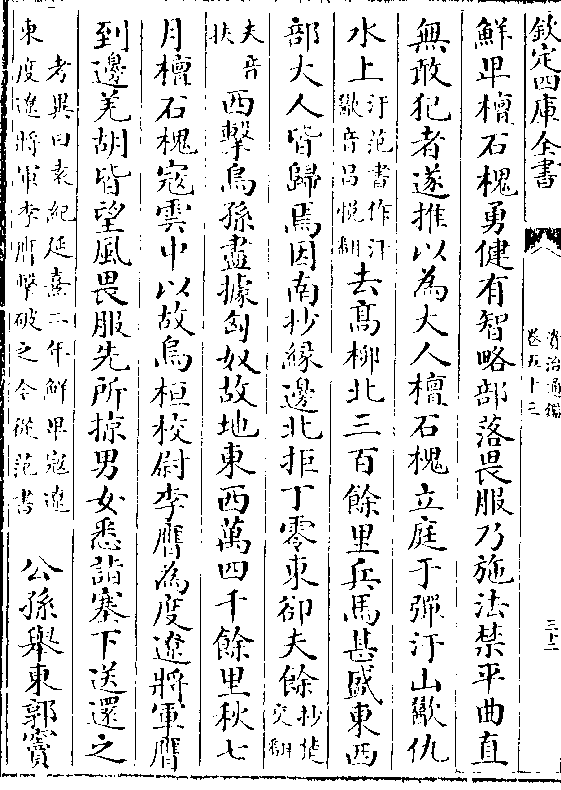 欽定四庫全書
資治通鑑
卷五十三
三十二
鮮卑檀石槐勇健有智略部落畏服乃施法禁平曲直
無敢犯者遂推以為大人檀石槐立庭于彈汙山歠仇
水上汙范書作汗歠音昌悅翻去髙栁北三百餘里兵馬甚盛東西
部大人皆歸焉因南抄縁邊北拒丁零東卻夫餘抄楚交翻
夫音扶西擊烏孫盡據匈奴故地東西萬四千餘里秋七
月檀石槐寇雲中以故烏桓校尉李膺為度遼將軍膺
到邊羌胡皆望風畏服先所掠男女悉詣塞下送還之
考異曰袁紀延熹二年鮮卑寇遼東度遼將軍李膺擊破之今從范書公孫舉東郭竇